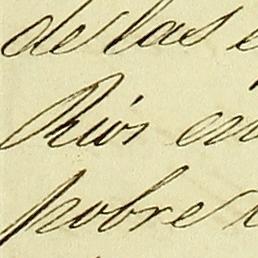 de las
Rios en
pobre